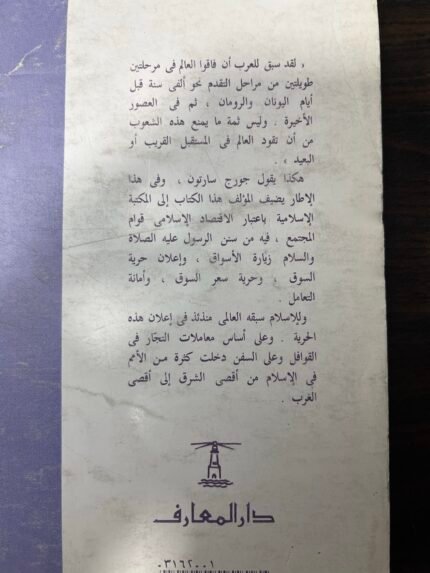 « لقد سبق للعرب أن فاقوا العالم فى مرحلتين
طويلتين من مراحل التقدم نحو ألفى سنة قبل
أيام اليونان والرومان ، ثم فى العصور
الأخيرة . وليس ثمة ما يمنع هذه الشعوب
من أن تقود العالم فى المستقبل القريب أو
البعيد » .
هكذا يقول جورج سارتون ، وفى هذا
الإطار يضيف المؤلف هذا الكتاب إلى المكتبة
الإسلامية باعتبار الاقتصاد الإسلامى قوام
المجتمع ، فيه من سنن الرسول عليه الصلاة
والسلام زيارة الأسواق ، وإعلان حرية
السوق ، وحرية سعر السوق ، وأمانة
التعامل .
وللإسلام سبقه العالمى منذئذ فى إعلان هذه
الحرية . وعلى أساس معاملات التجّار فى
القوافل وعلى السفن دخلت كثرة من الأمم
فى الإسلام من أقصى الشرق إلى أقصى
الغرب .
دار المعارف
٠٣١٦٢٠٠١